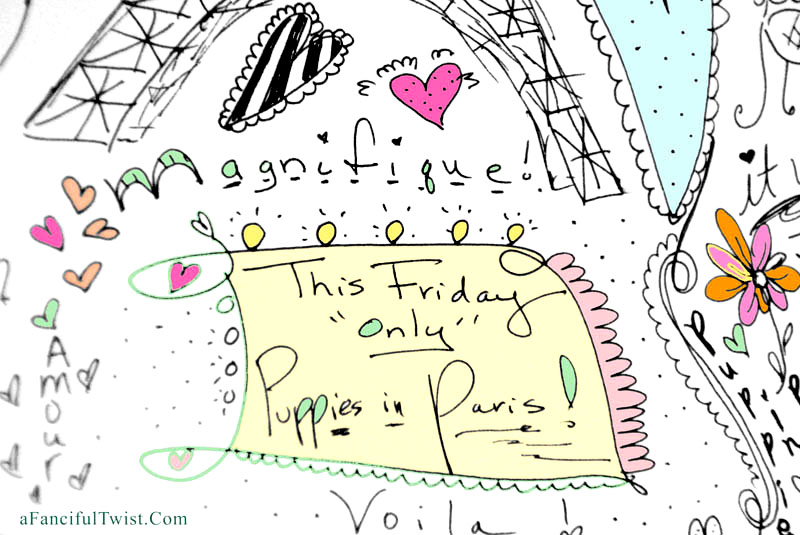 Magnifique!
it
This Friday
"only"
Puppies in Paris!
Amour
Voila !
aFancifulTwist.Com